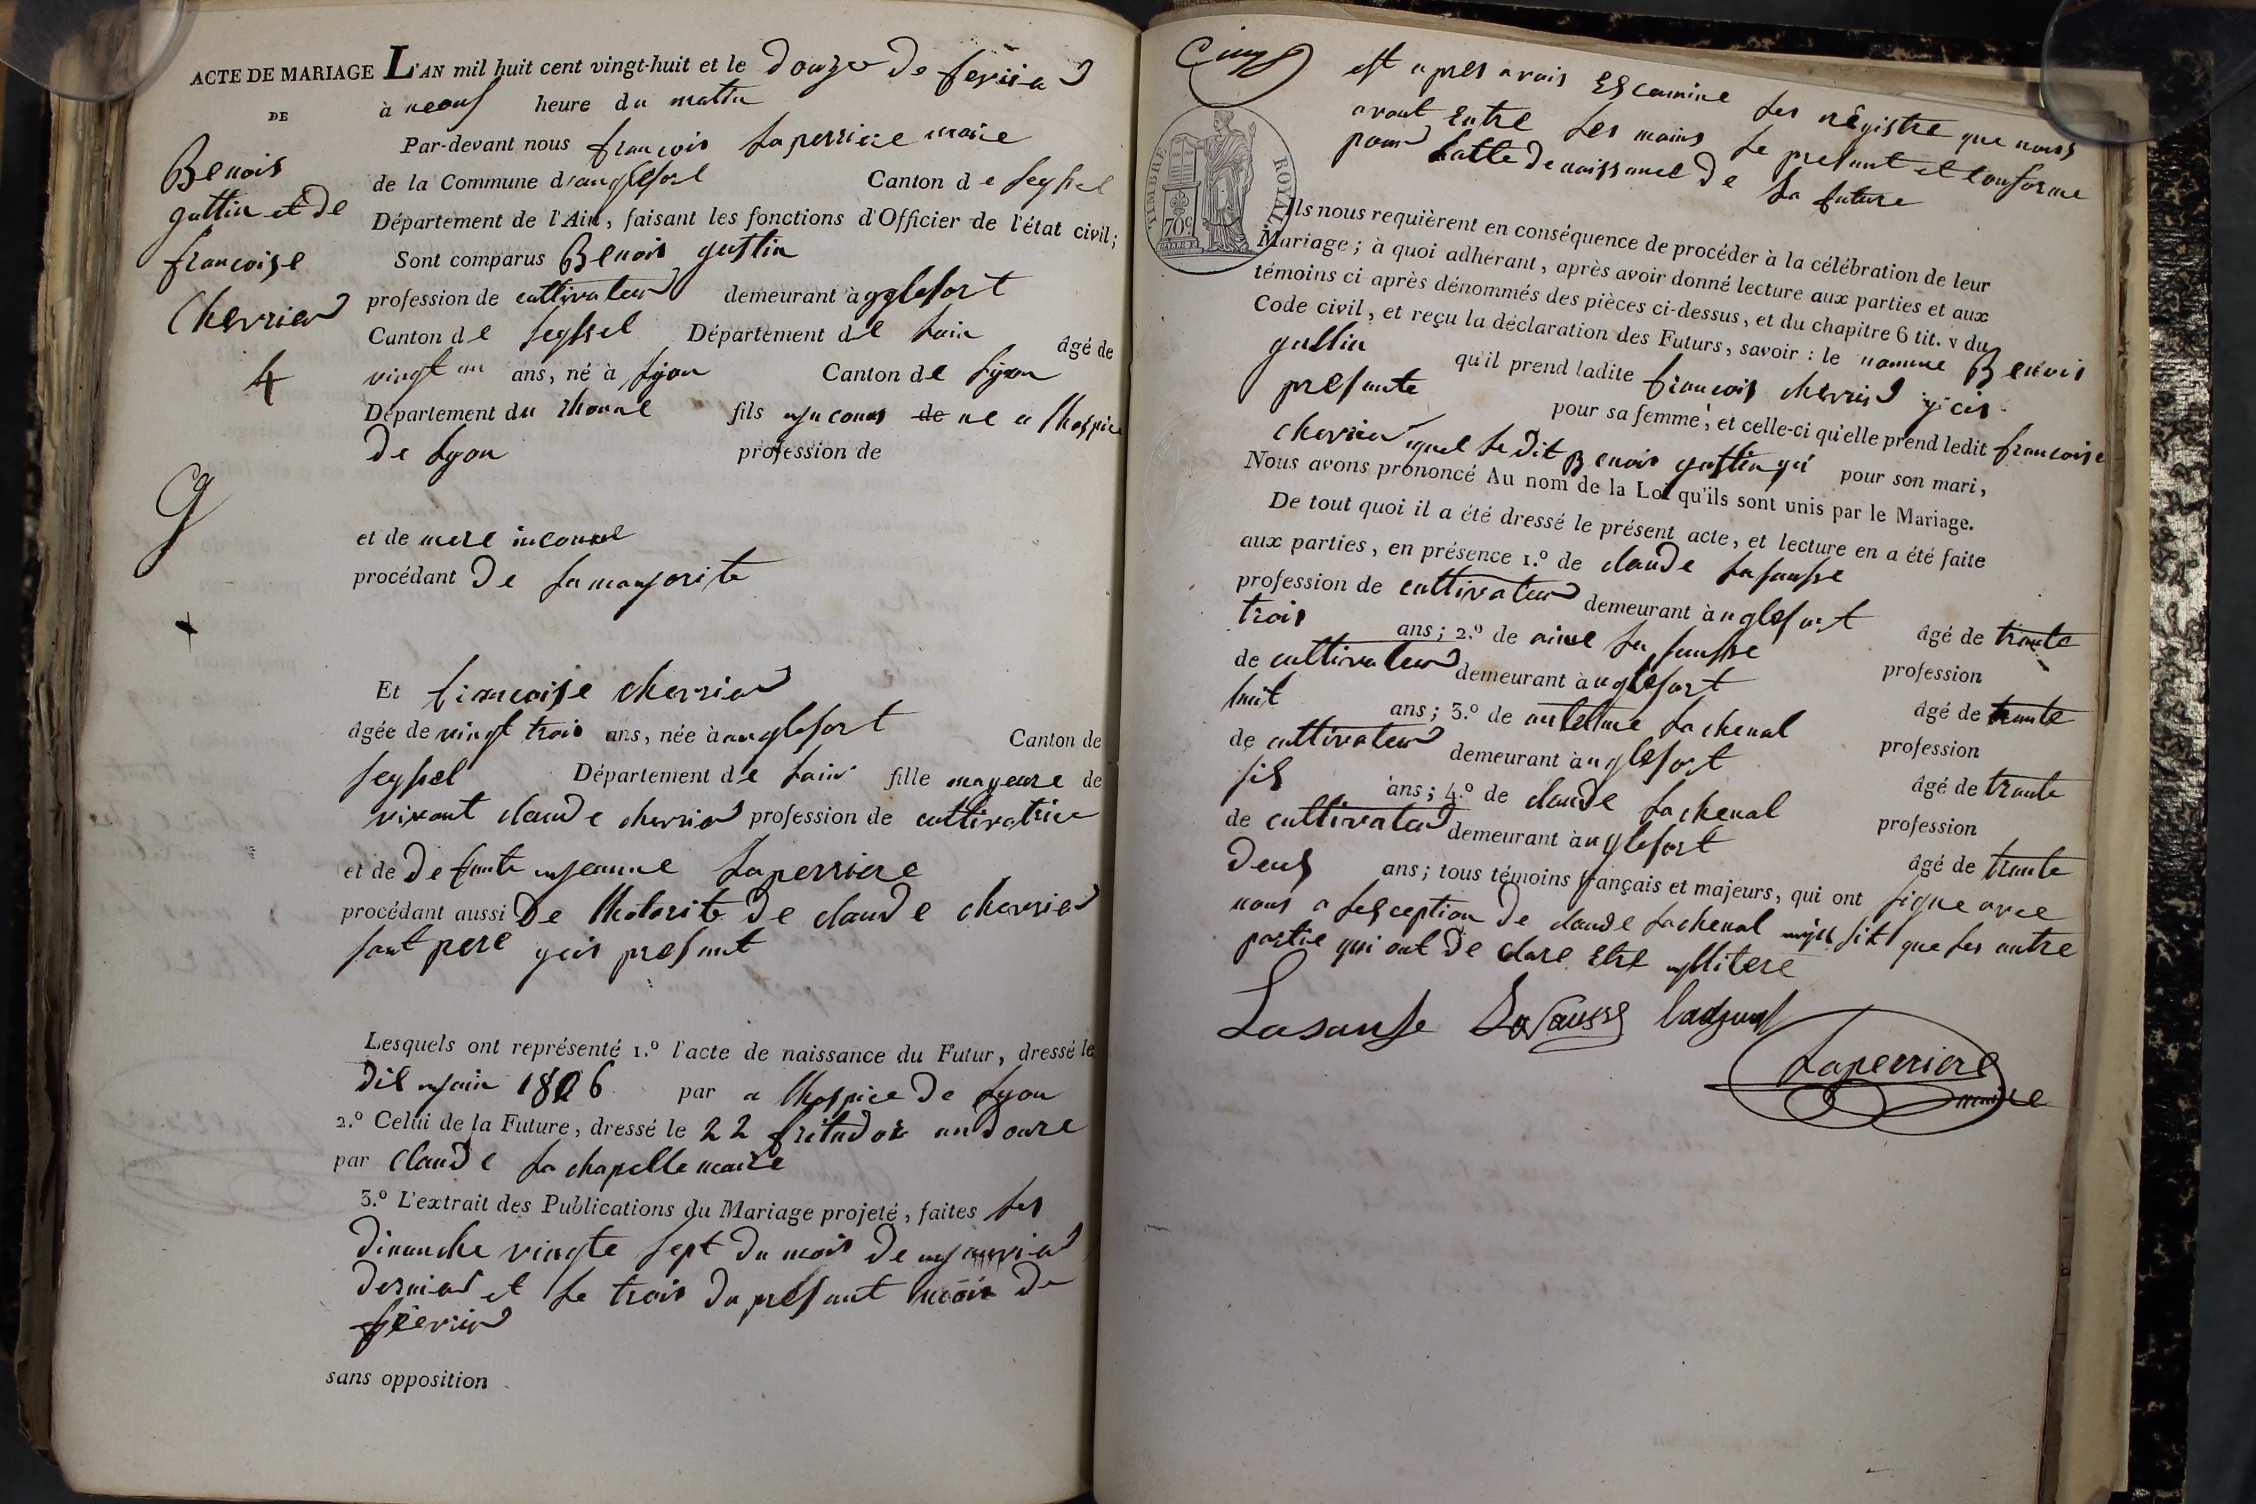 ACTE DE MARIAGE L'AN mil huit cent vingt-huit et le douze de fevrier
DE
à neouf heure du matin
Par-devant nous francois Laperriere maire
Benois
guttin et de
francoise
Cherrier
4
de la Commune d'anglefort Canton de seyssel
Département de l'Ain, faisant les fonctions d'Officier de l'état civil;
Sont comparus Benois guttin
profession de cultivateur demeurant à gglefort
Canton de seyssel Département de Lain âgé de
vingt un ans, né à Lyon Canton de Lyon
Département du rhonne fils de ne a lhospice
de Lyon profession de
et de mere inconnue
procédant de La majorite
Et francoise cherrier
âgée de vingt trois ans, née à anglefort Canton de
seyssel Département de Lain fille mageure de
vivant claude cherrier profession de cultivatrice
et de defunte jeanne Laperriere
procédant aussi De lhotorite de claude cherrier
sont pere ycis present
Lesquels ont représenté 1.º l'acte de naissance du Futur, dressé le
dix juin 1806 par a lhospice de Lyon
2.º Celui de la Future, dressé le 22 frutador an douze
par claude Lachapelle maire
3.º L'extrait des Publications du Mariage projeté, faites Les
dimanche vingte sept du mois de janvier
dernier et Le trois du present mois de
frevrier
sans opposition
Cinq
est apres avois Escamine Les régistre que nous
avont Entre Les mains Le present et conforme
pour Latte de naissance de La future
TIMBRE ROYAL
70 c
Ils nous requièrent en conséquence de procéder à la célébration de leur
Mariage; à quoi adhérant, après avoir donné lecture aux parties et aux
témoins ci après dénommés des pièces ci-dessus, et du chapitre 6 tit. v du
Code civil, et reçu la déclaration des Futurs, savoir : le nomme Benois
guttin qu'il prend ladite francois cherrier ycis
presante pour sa femme, et celle-ci qu'elle prend ledit francoise
cherrier quel Le dit Benois guttin pour son mari,
Nous avons prononcé Au nom de la Loi qu'ils sont unis par le Mariage.
De tout quoi il a été dressé le présent acte, et lecture en a été faite
aux parties, en présence 1.º de claude Lasausse
profession de cultivateur demeurant à nglefort âgé de trante
trois ans; 2.º de aime La sausse profession
de cultivateur demeurant à nglefort âgé de trante
huit ans; 3.º de antelme Lachenal profession
de cultivateur demeurant à nglefort âgé de trante
sis ans; 4.º de claude Lachenal profession
de cultivateur demeurant à nglefort âgé de trante
deus ans; tous témoins français et majeurs, qui ont signe avec
nous a Lesception de claude Lachenal que Les autre
partie qui ont declare Etre yllitere
Lasausse Lasausse Lachenal
Laperriere
maire